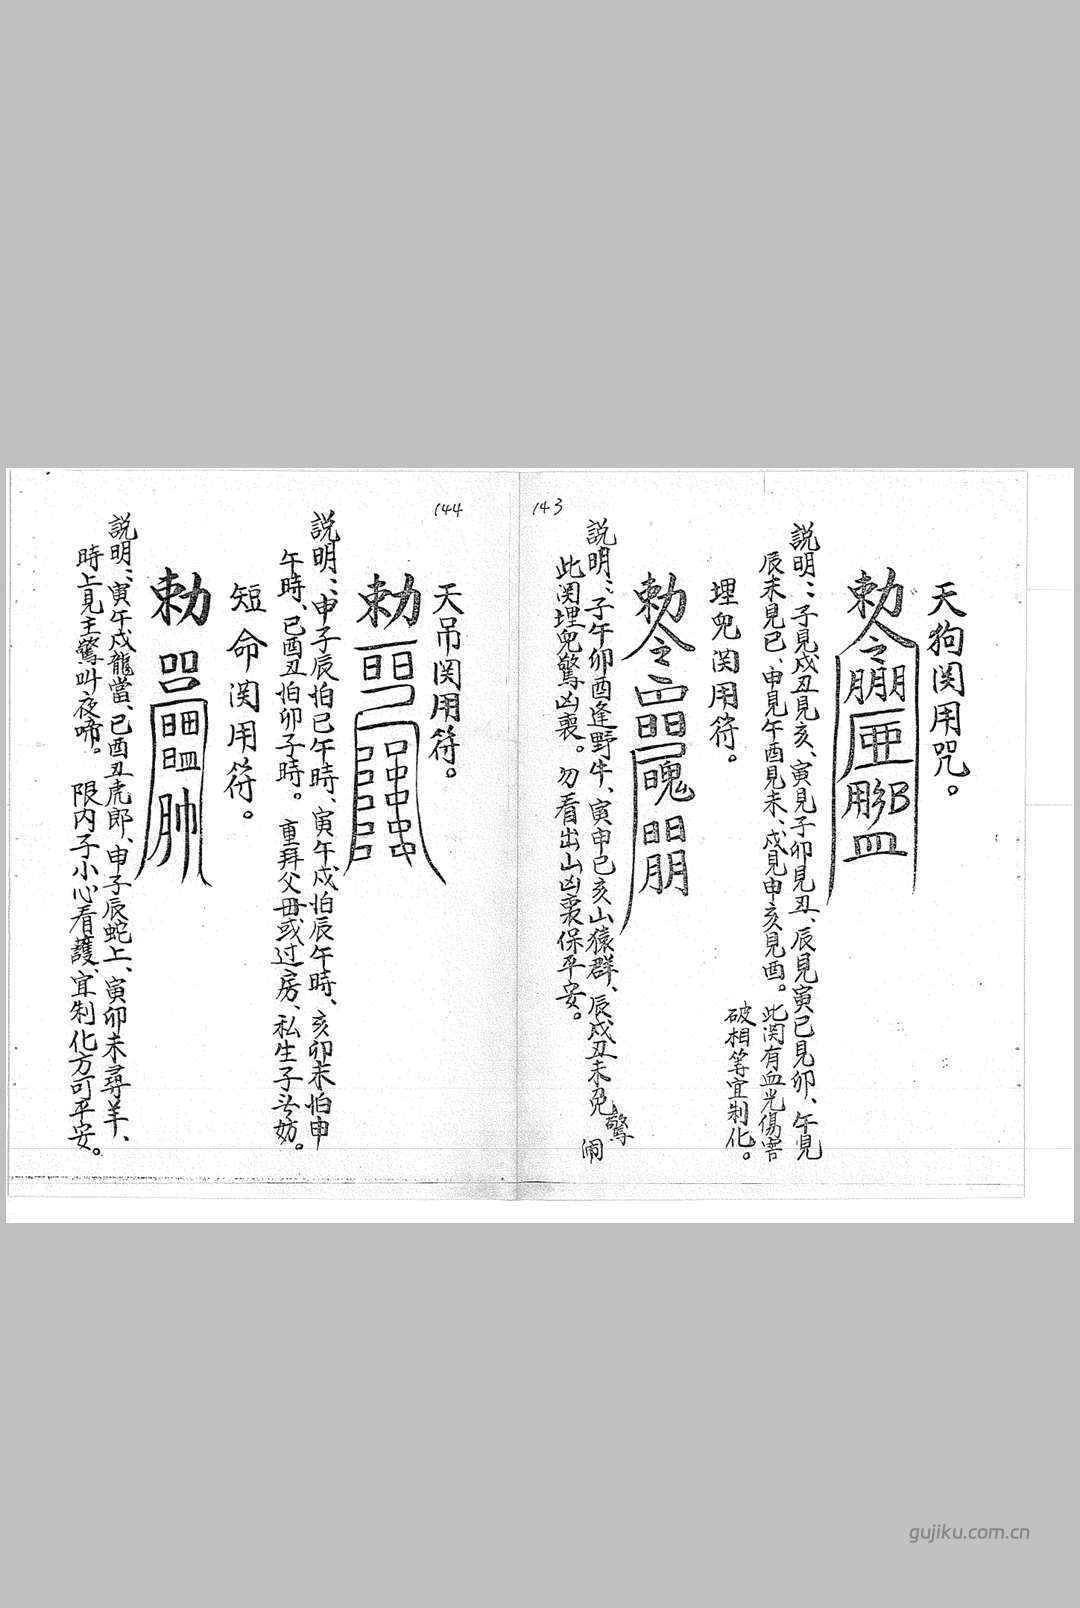 143
天狗関用咒。
勅令
説明：子見戍丑見亥、寅見子卯見丑、辰見寅巳見卯、午見
辰未見巳、申見午酉見未、戍見申亥見酉。此関有血光傷害
破相等宜制化。
埋兒関用符。
勅令
説明：子午卯酉逢野牛、寅申巳亥山猿群、辰戍丑未兒驚
闹
此関埋兒驚凶喪。勿看出山凶喪保平安。
144
天吊関用符。
勅
説明：申子辰怕巳午時、寅午戍怕辰午時、亥卯未怕申
午時、巳酉丑怕卯子時。重拜父母或过房、私生子
短命関用符。
勅
説明：寅午戍龍當、巳酉丑虎郎、申子辰蛇上、寅卯未尋羊、
時上見主驚叫夜啼。限内子小心看護、宜制化方可平安。
gujiku.com.cn